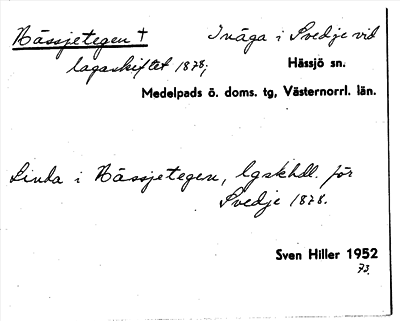 Nässjetegen † Inäga i Svedje vid
lagaskiftet 1878;
Hässjö sn.
Medelpads ö. doms. tg, Västernorrl. län.
Linda i Nässjetegen, lgskhdl. för
Svedje 1878.
Sven Hiller 1952
73.